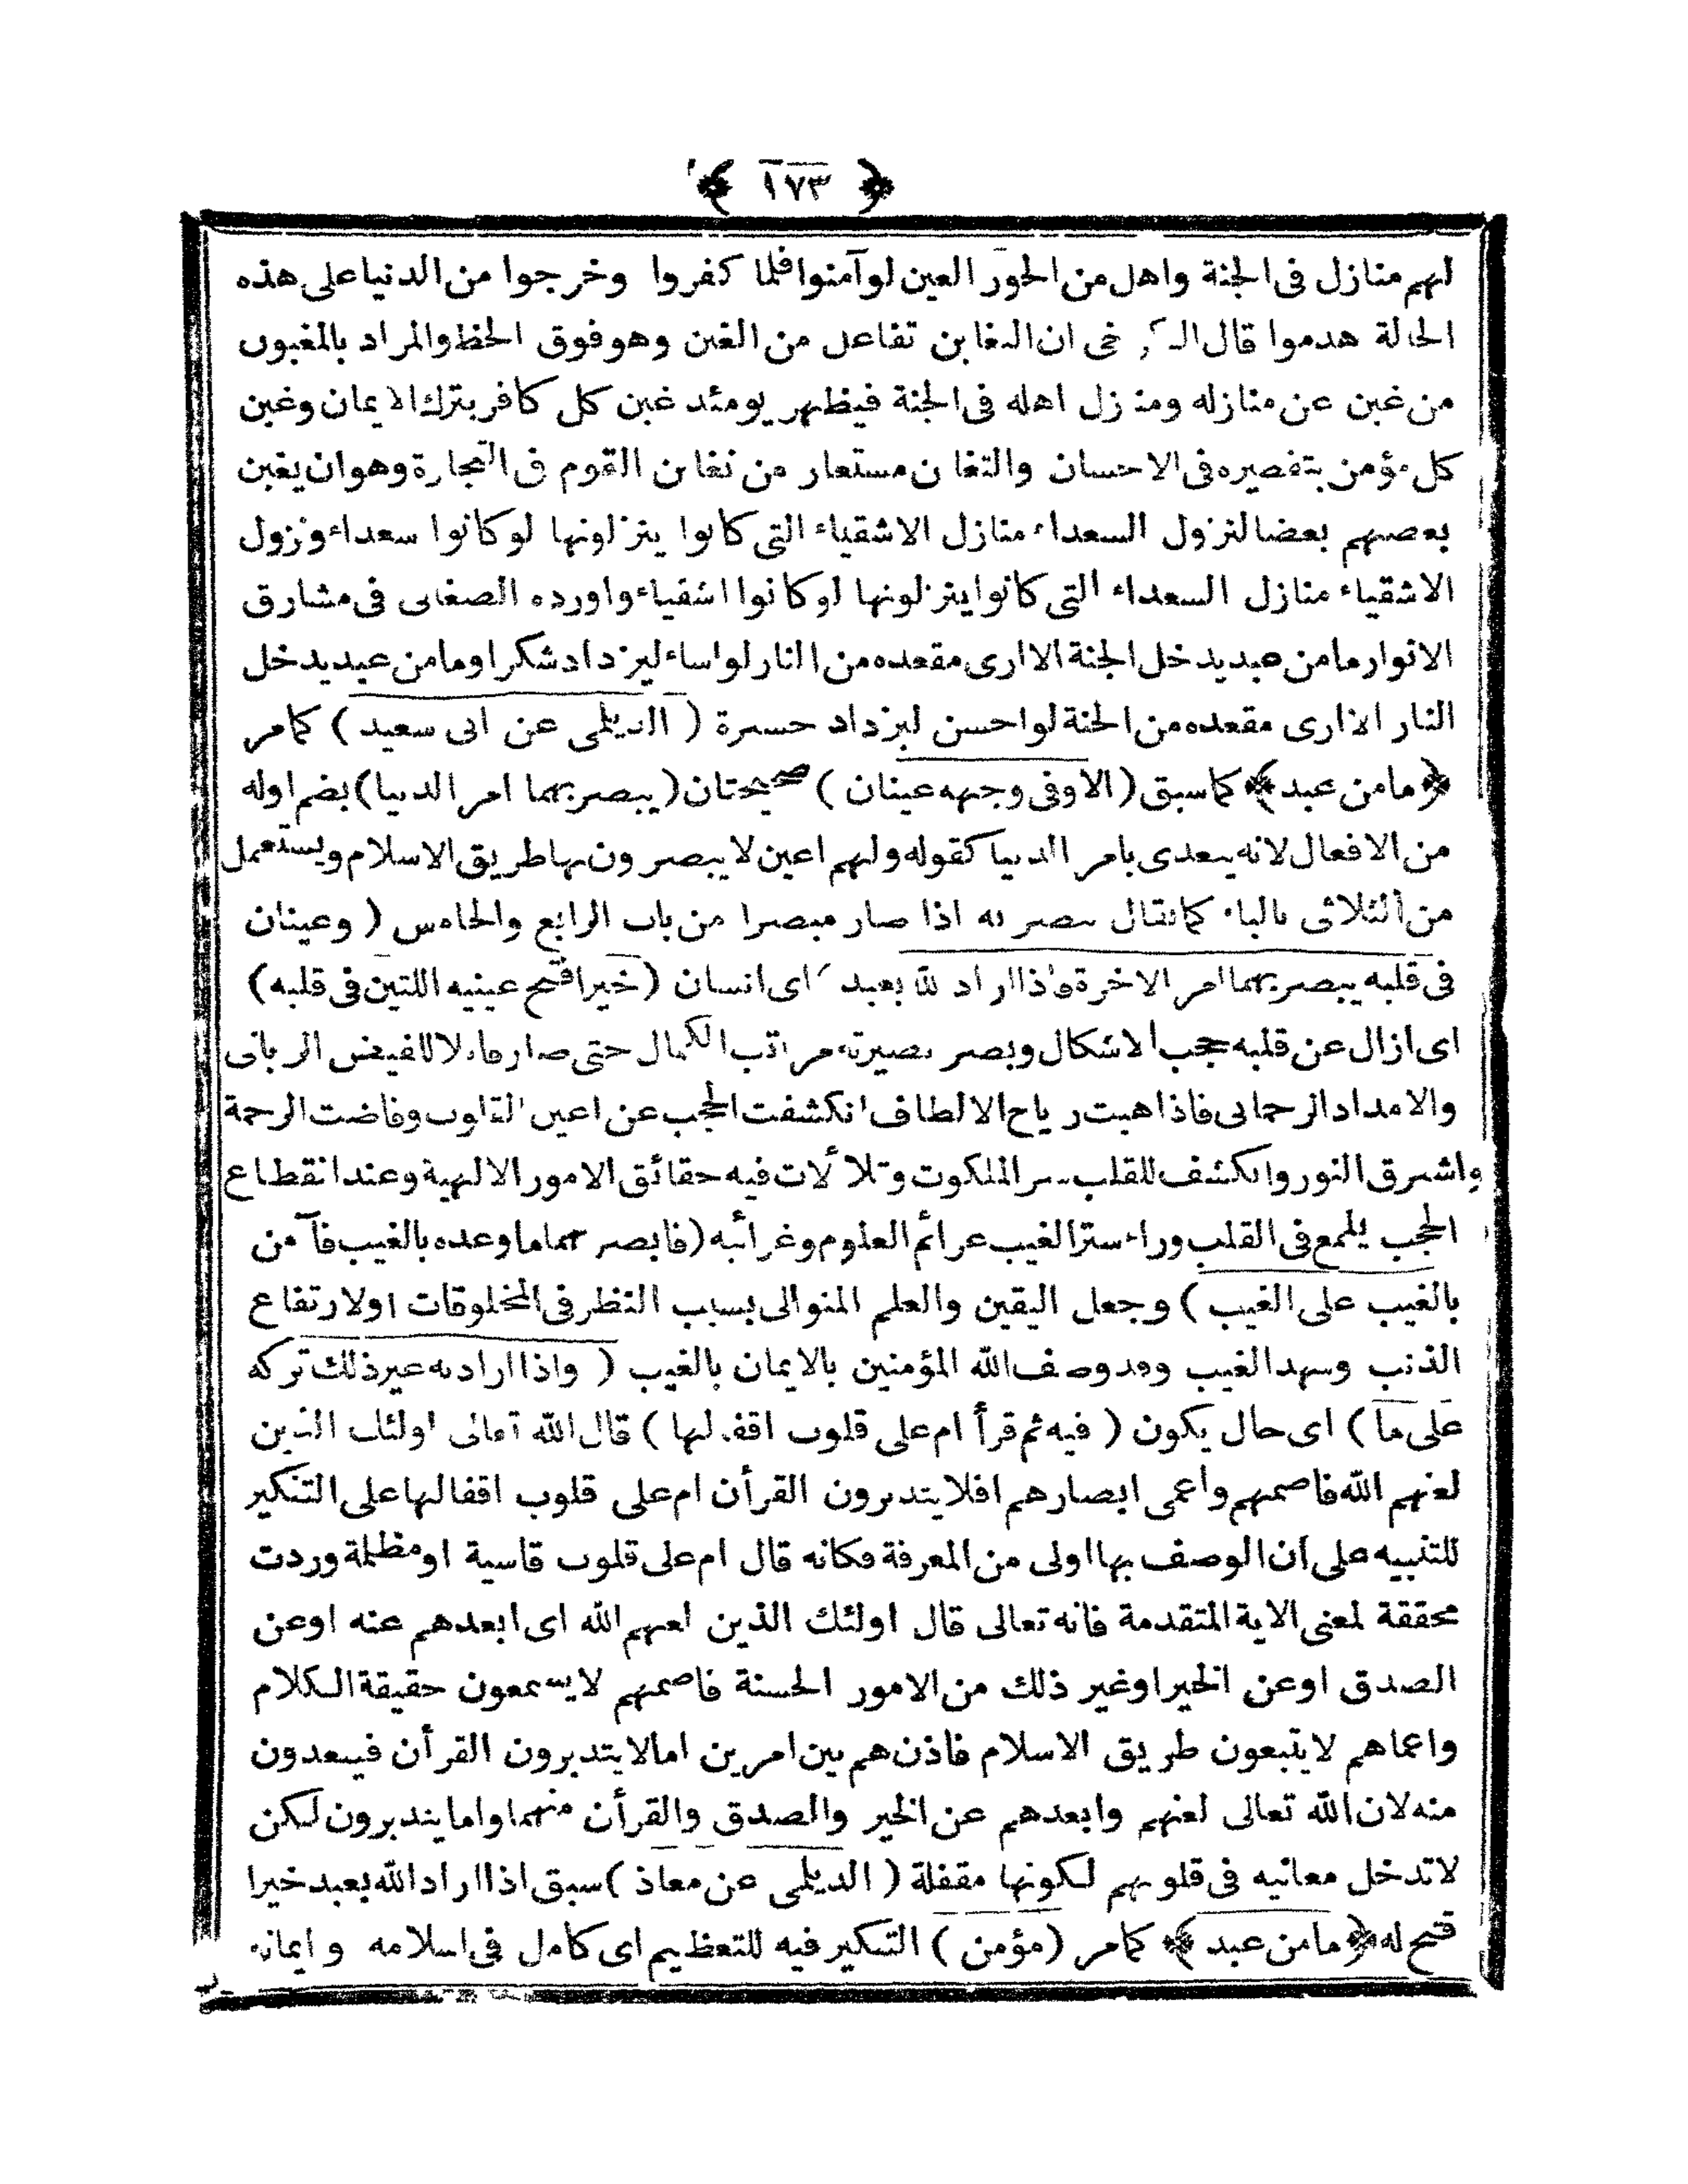 ﴿ ١٧٣ ﴾
لهم منازل فى الجنة واهل من الحور العين لو آمنوا فلما كفروا وخرجوا من الدنيا على هذه
الحالة هدموا قال خى ان التغابن تفاعل من الغبن وهو فوق الحظ والمراد بالمغبون
من غبن عن منازله ومنازل اهله فى الجنة فيظهر يومئذ غبن كل كافر بترك الايمان وغبن
كل مؤمن بتقصيره فى الاحسان والتغابن مستعار من تغابن القوم فى التجارة وهو ان يغبن
بعضهم بعضا لنزول السعداء منازل الاشقياء التى كانوا ينزلونها لو كانوا سعداء ونزول
الاشقياء منازل السعداء التى كانوا ينزلونها لو كانوا اشقياء واورده الصغانى فى مشارق
الانوار ما من عبد يدخل الجنة الا ارى مقعده من النار لو اساء ليزداد شكرا وما من عبد يدخل
النار الا ارى مقعده من الجنة لو احسن ليزداد حسرة ( الديلمى عن ابى سعيد ) كمامر
﴿ ما من عبد ﴾ كما سبق ( الا وفى وجهه عينان ) صحيحتان ( يبصر بهما امر الدنيا ) بضم اوله
من الافعال لانه يتعدى بامر الدنيا كقوله ولهم اعين لا يبصرون بها طريق الاسلام ويستعمل
من الثلاثى بالباء كما يقال بصر به اذا صار مبصرا من باب الرابع والخامس ( وعينان
فى قلبه يبصر بهما امر الاخرة فاذا اراد لله بعبد اى انسان ( خيرا فتح عينيه اللتين فى قلبه )
اى ازال عن قلبه حجب الاشكال وبصر بصيرته مراتب الكمال حتى صار قابلا للفيض الربانى
والامداد الرحمانى فاذا هبت رياح الالطاف انكشفت الحجب عن اعين القلوب وفاضت الرحمة
واشرق النور وانكشف للقلب سر الملكوت وتلألأت فيه حقائق الامور الالهية وعند انقطاع
الحجب يلمع فى القلب وراء ستر الغيب عرائم العلوم وغرائبه ( فابصر بهما ما وعده بالغيب فآمن
بالغيب على الغيب ) وجعل اليقين والعلم المتوالى بسبب النظر فى المخلوقات اولا رتفاع
الذنب وشهد الغيب وقد وصف الله المؤمنين بالايمان بالغيب ( واذا اراد به غير ذلك تركه
على ما ) اى حال يكون ( فيه ثم قرأ ام على قلوب اقفالها ) قال الله تعالى اولئك الذين
لعنهم الله فاصمهم واعمى ابصارهم افلا يتدبرون القرأن ام على قلوب اقفالها على التنكير
للتنبيه على ان الوصف بها اولى من المعرفة فكانه قال ام على قلوب قاسية او مظلمة وردت
محققة لمعنى الاية المتقدمة فانه تعالى قال اولئك الذين لعنهم الله اى ابعدهم عنه او عن
الصدق او عن الخير او غير ذلك من الامور الحسنة فاصمهم لا يسمعون حقيقة الكلام
واعماهم لا يتبعون طريق الاسلام فاذن هم بين امرين اما لا يتدبرون القرأن فيبعدون
منه لان الله تعالى لعنهم وابعدهم عن الخير والصدق والقرأن منهما واما يتدبرون لكن
لا تدخل معانيه فى قلوبهم لكونها مقفلة ( الديلمى عن معاذ ) سبق اذا اراد الله بعبد خيرا
فتح له ﴿ ما من عبد ﴾ كمامر ( مؤمن ) التنكير فيه للتعظيم اى كامل فى اسلامه وايمانه